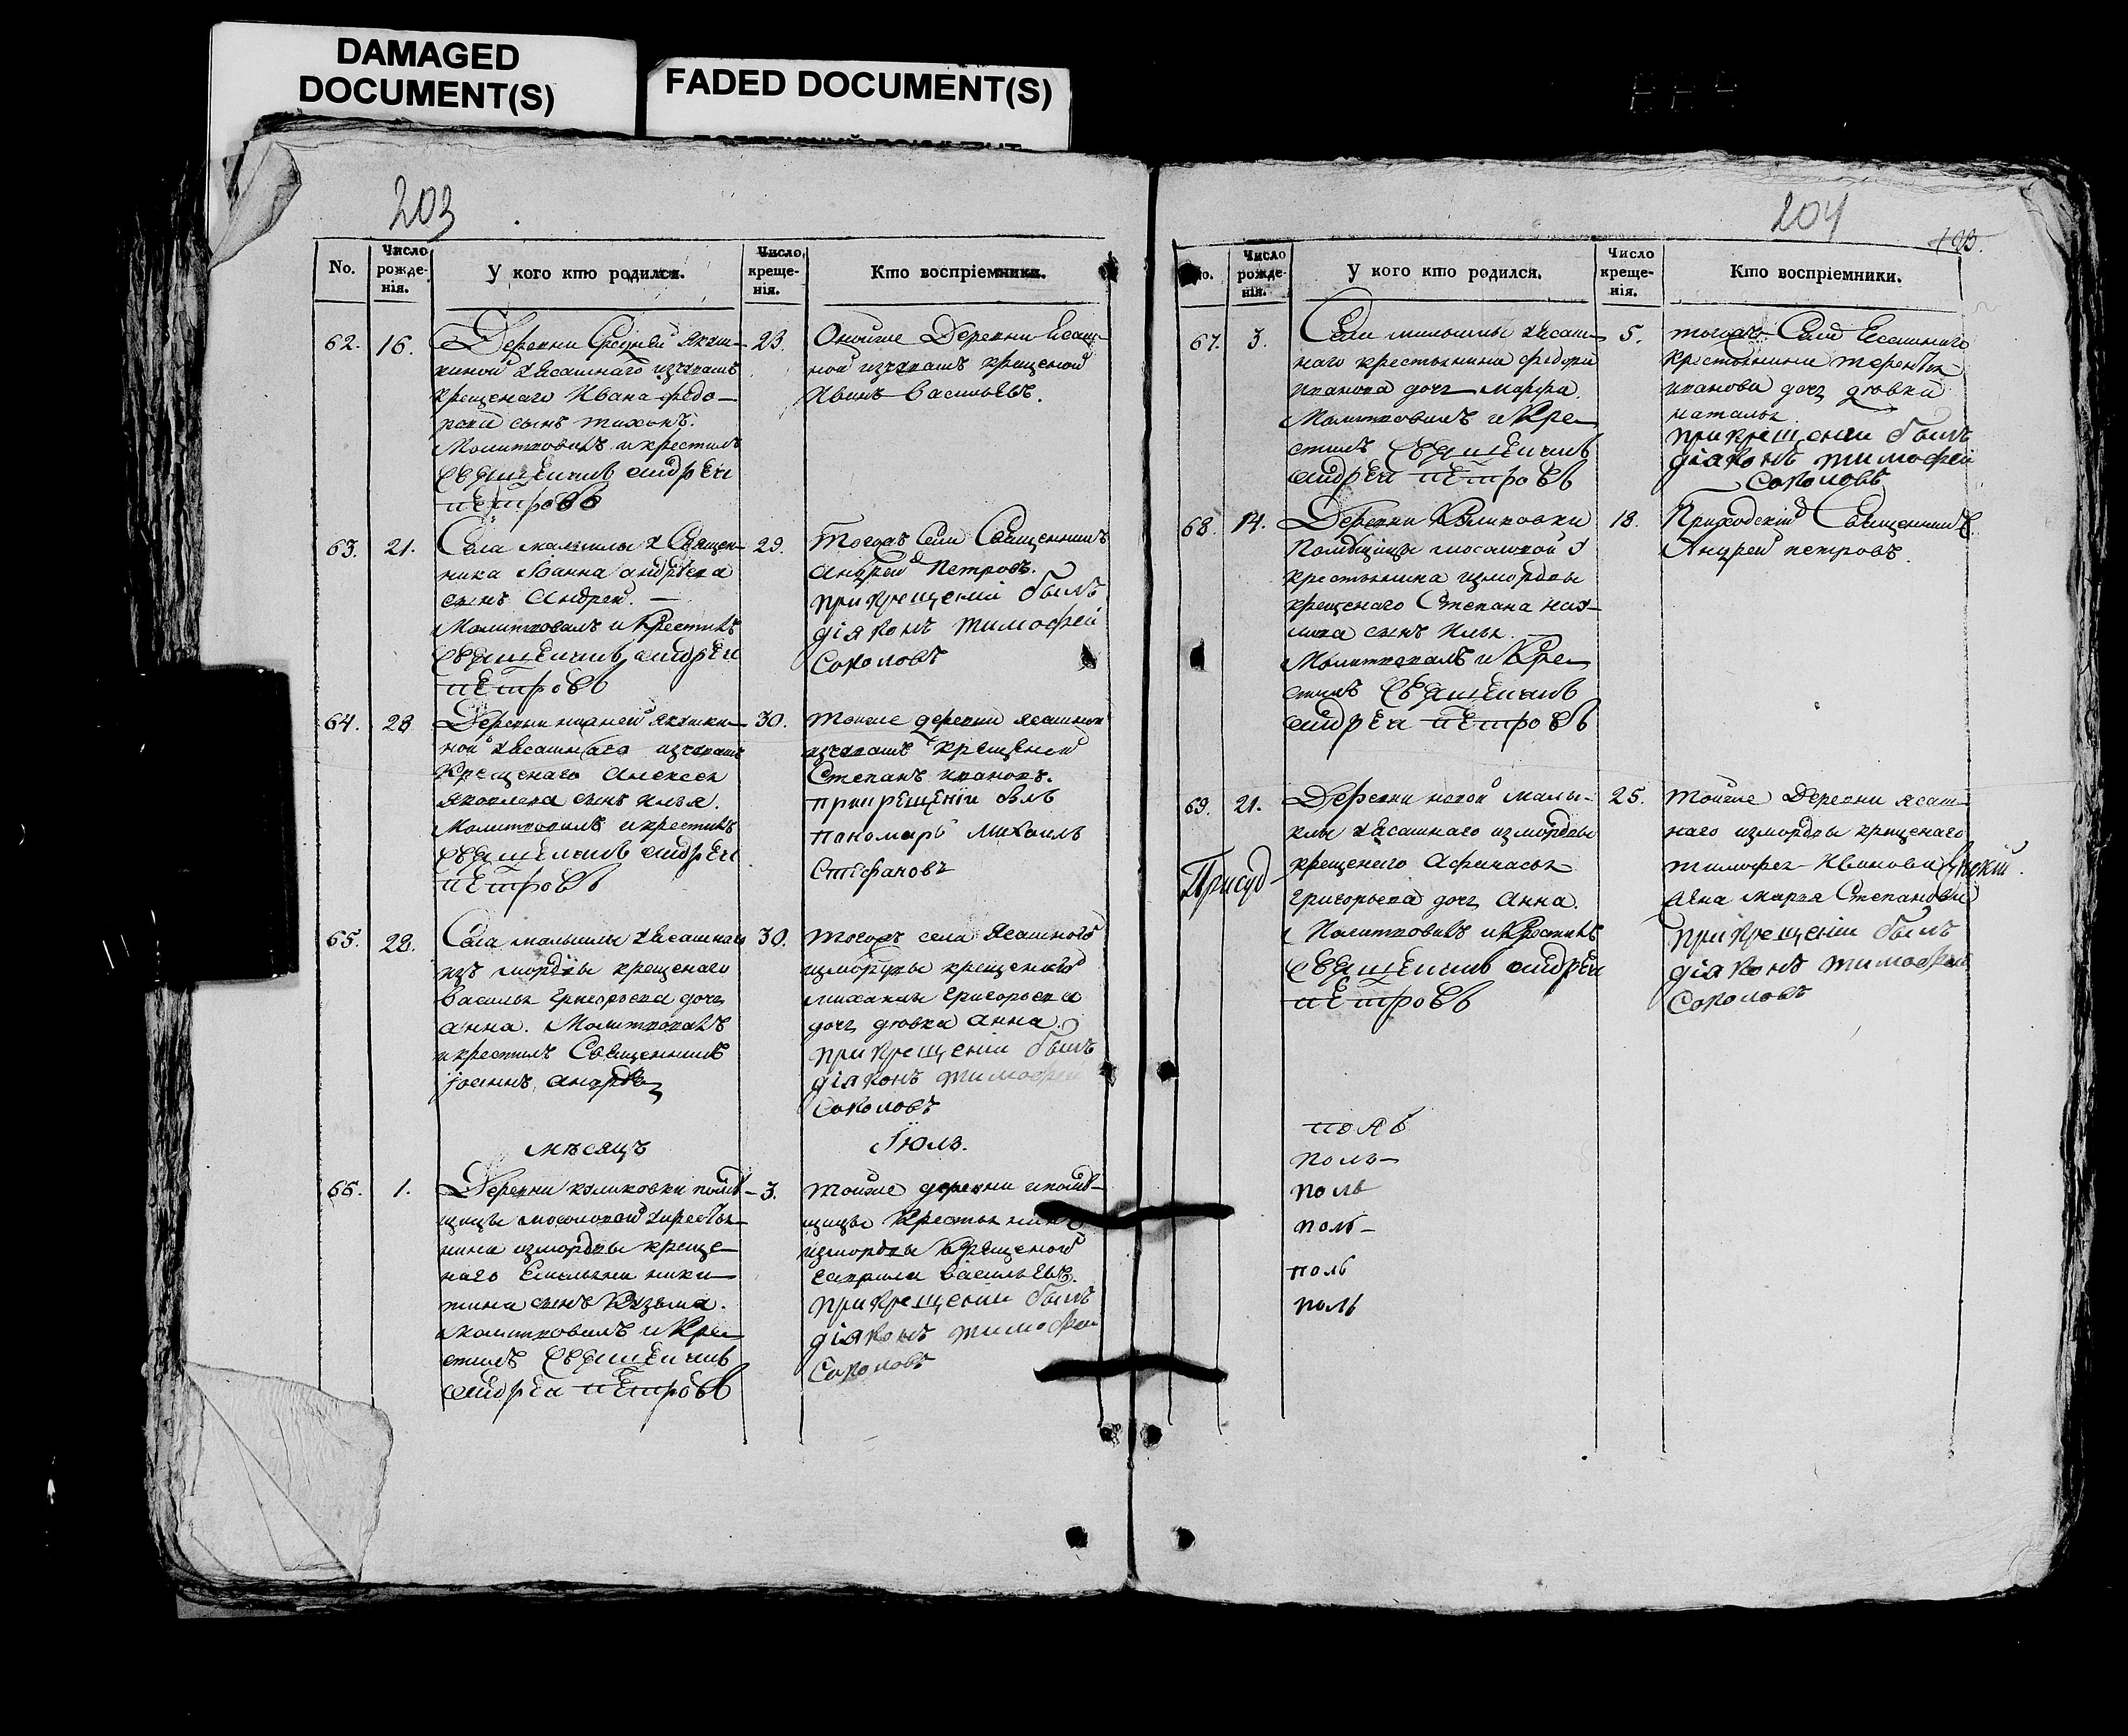 DAMAGED
DOCUMENT(S)
FADED DOCUMENT(S)
203
No.
Число рожде-нія.
У кого кто родился.
Число креще-нія.
Кто воспріемники.
62. 16.
Деревни Средней Якуш-
киной ясашнаго изчувашъ
крещенаго Ивана Федо-
рова сынъ Тихонъ.
Молитвовалъ и крестилъ
Священникъ Андреи
Петровъ
23.
Оной же Деревни Ясаш-
ной изчувашъ крещеной
Иванъ Васильевъ.
63. 21.
Села малыклы Священ-
ника Іоанна Андреева
сынъ Андрей.
Молитвовалъ и Крестилъ
Священникъ Андреи
Петровъ
29.
Тогожъ Села Священникъ
Андрей Петровъ.
при крещеніи былъ
діяконъ Тимофей
Соколовъ
64. 23
Деревни нижней якушки-
ной ясашнаго изчувашъ
Крещенаго Алексея
Яковлева сынъ Илья.
Молитвовалъ и крестилъ
Священникъ Андреи
Петровъ
30.
Тойже деревни ясашной
изчувашъ крещеной
Степанъ Ивановъ.
при крещеніи былъ
пономарь Михаилъ
Стефановъ
65. 28.
Села малыклы ясашнаго
изъ мордвы крещенаго
Василья Григорьева дочь
анна. Молитвовалъ
и крестилъ Священникъ
Іоаннъ Андреевъ
30.
Тогожъ села Ясашного
измордвы крещеного
Михайлы Григорьева
дочь девка Анна.
при крещеніи былъ
діяконъ Тимофей
Соколовъ
мѣсяцъ Іюль.
66. 1.
Деревни куликовки помѣ-
щицы мосоловой крестья-
нина измордвы креще-
наго Емельяна Ники-
тина сынъ Кузьма.
Молитвовалъ и Кре-
стилъ Священникъ
Андреи Петровъ
3.
Тойже деревни и помѣ-
щицы Крестьянинъ
измордвы Крещеной
Гаврила Васильевъ.
при крещеніи былъ
діяконъ Тимофеи
Соколовъ
204
No.
Число рожде-нія.
У кого кто родился.
Число креще-нія.
Кто воспріемники.
67. 3.
Села малыклы ясаш-
наго крестьянина Федора
Иванова дочь Марфа.
Молитвовалъ и Кре-
стилъ Священникъ
Андреи Петровъ
5.
тогожъ Села Ясашнаго
крестьянина Терентья
Иванова дочь девка
Наталья
при крещеніи былъ
діяконъ Тимофей
Соколовъ
68. 14.
Деревни Куликовки
Помѣщицы мосоловой
крестьянина измордвы
крещенаго Степана
сынъ Илья.
Молитвовалъ и Кре-
стилъ Священникъ
Андреи Петровъ
18.
Приходскій Священникъ
Андрей Петровъ.
69. 21.
Деревни новой малы-
клы ясашнаго измордвы
крещенаго Афанасья
Григорьева дочь Анна.
Молитвовалъ и Крестилъ
Священникъ Андреи
Петровъ
25.
Тойже Деревни ясаш-
наго измордвы крещенаго
Тимофея Иванова
жена Марья Степанова
при крещеніи былъ
діяконъ Тимофеи
Соколовъ